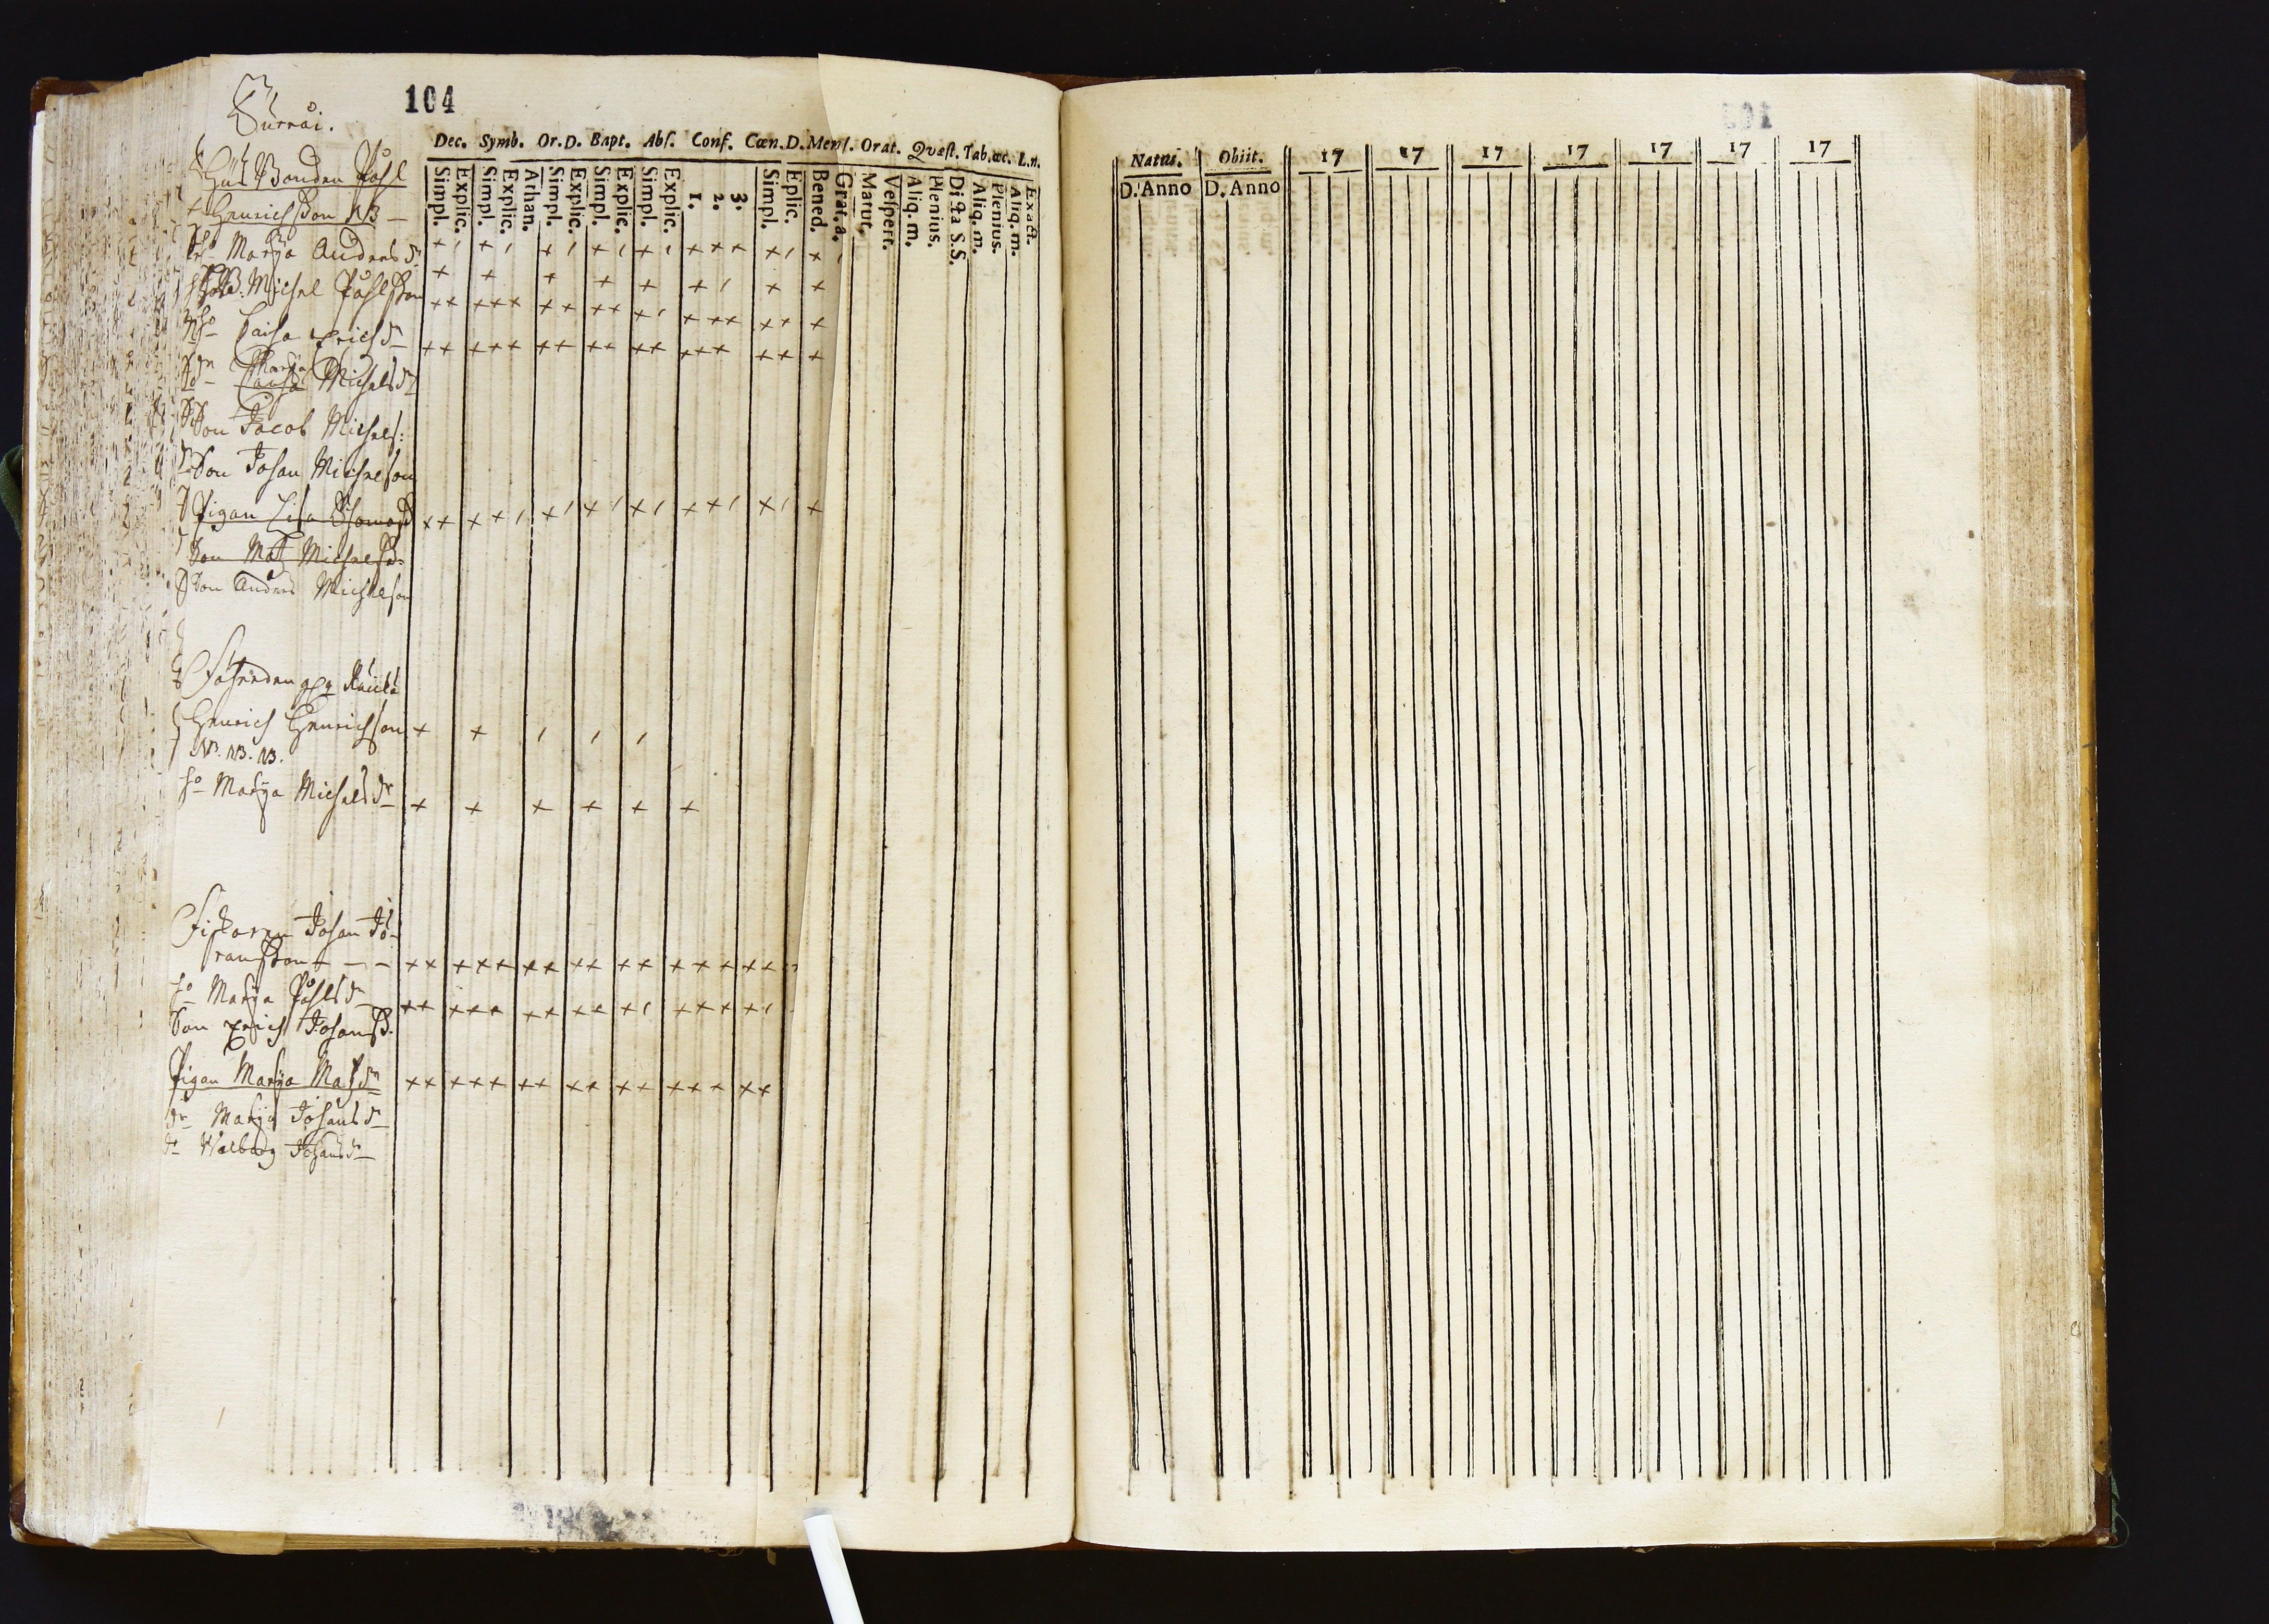 104
Dec. Symb. Or. D. Bapt. Abs. Conf. Cœn. D. Mens. Orat. Quæst. Tab. œc. L.n.
Simpl. Explic. Simpl. Explic. Athan. Simpl. Explic. Simpl. Explic. Simpl. Explic. 1. 2. 3. Simpl. Eplic. Bened. Grat. a. Matut. Vespert. Aliq. m. Plenius. Dicta S.S. Aliq. m. Plenius. Aliq. m. Exact.
Bonden Påhl
Henrichson NB
Marÿa Anders dr
Michel Påhlson
Caisa Erichs dr
Marÿa Michels dr
Son Jacob Michels:
Son Johan Michelson
Pigan Lisa Thomasd
Son Matz Michels
Son Anders Michelson
Henrich Henrichson
NB. NB. NB.
ho Marÿa Michels dr
Fiskaren Johan Jö-
ransson
ho Marÿa Påhls dr
Son Erich Johans
Pigan Marÿa Mats dr
dr Marÿa Johans dr
dr Walborg Johans dr
Natus. Obiit. 17 17 17 17 17 17 17
D. Anno D. Anno